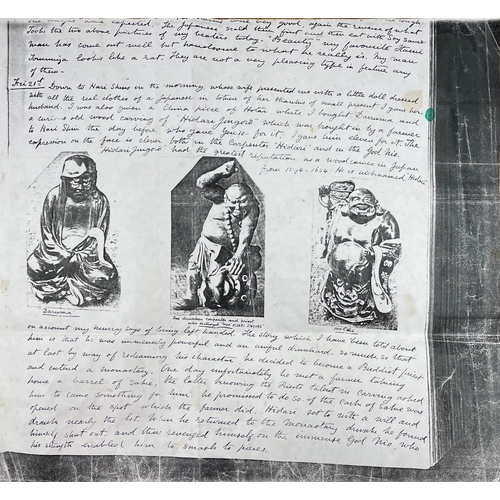 took the two above pictures of my beaters today. "Beauty" my favourite Hansi
man has come out well but handsome to what he really is. My man
looks like a rat. They are not a very pleasing type in feature any
of them.
Fri 21st. Down to Hari Shin in the morning, whose wife presented me with a little doll dressed
with all the real clothes of a Japanese in token of her thanks of small present I gave her
husband. I was also given a China piece of Hotei while I bought Daruma and
a curious old wood carving of "Hidari Jingoro" which was brought in by a farmer
to Hari Shin the day before who gave Yen 10. for it. I gave him eleven for it. The
expression on the face is clever both in the Carpenter 'Hidari' and in the God Nio.
"Hidari Jingoro" had the greatest reputation as a wood carver in Japan
from 1594-1634. He is nicknamed Hidari
Daruma
The drunken carpenter and priest
who destroyed "NIO HIDARI JINGORO"
Hotei
on account my being left handed. The story which I have been told about
him is that he was immensely powerful and an awful drunkard. so much so that
at last by way of redeeming his character he decided to become a Buddhist priest
and entered a monastery. One day unfortunately he met a farmer taking
home a barrel of sake, the latter knowing the Priests talent in carving asked
him to carve something for him. he promised to do so if the cask of sake was
opened on the spot which the farmer did. Hidari set to with a will and
drank nearly the lot. When he returned to the monastery drunk he found
himself shut out and then revenged himself on the immense God Nio, who
his strength enabled him to smash to pieces.